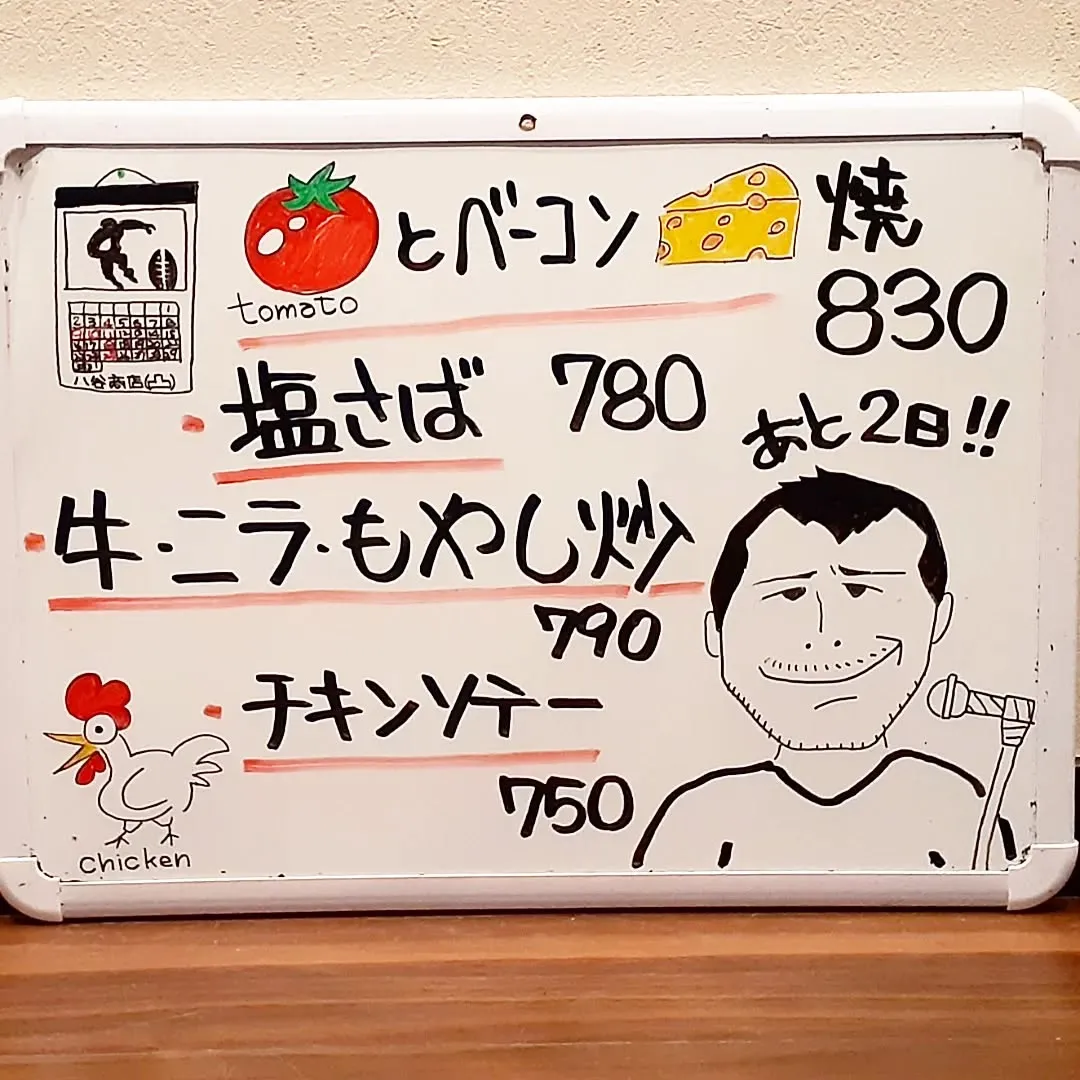 とベーコン 焼
tomato
830
塩さば 780
あと2日!!
牛・ニラ・もやし炒
790
チキンソテー
750
chicken
八谷商店(凸)